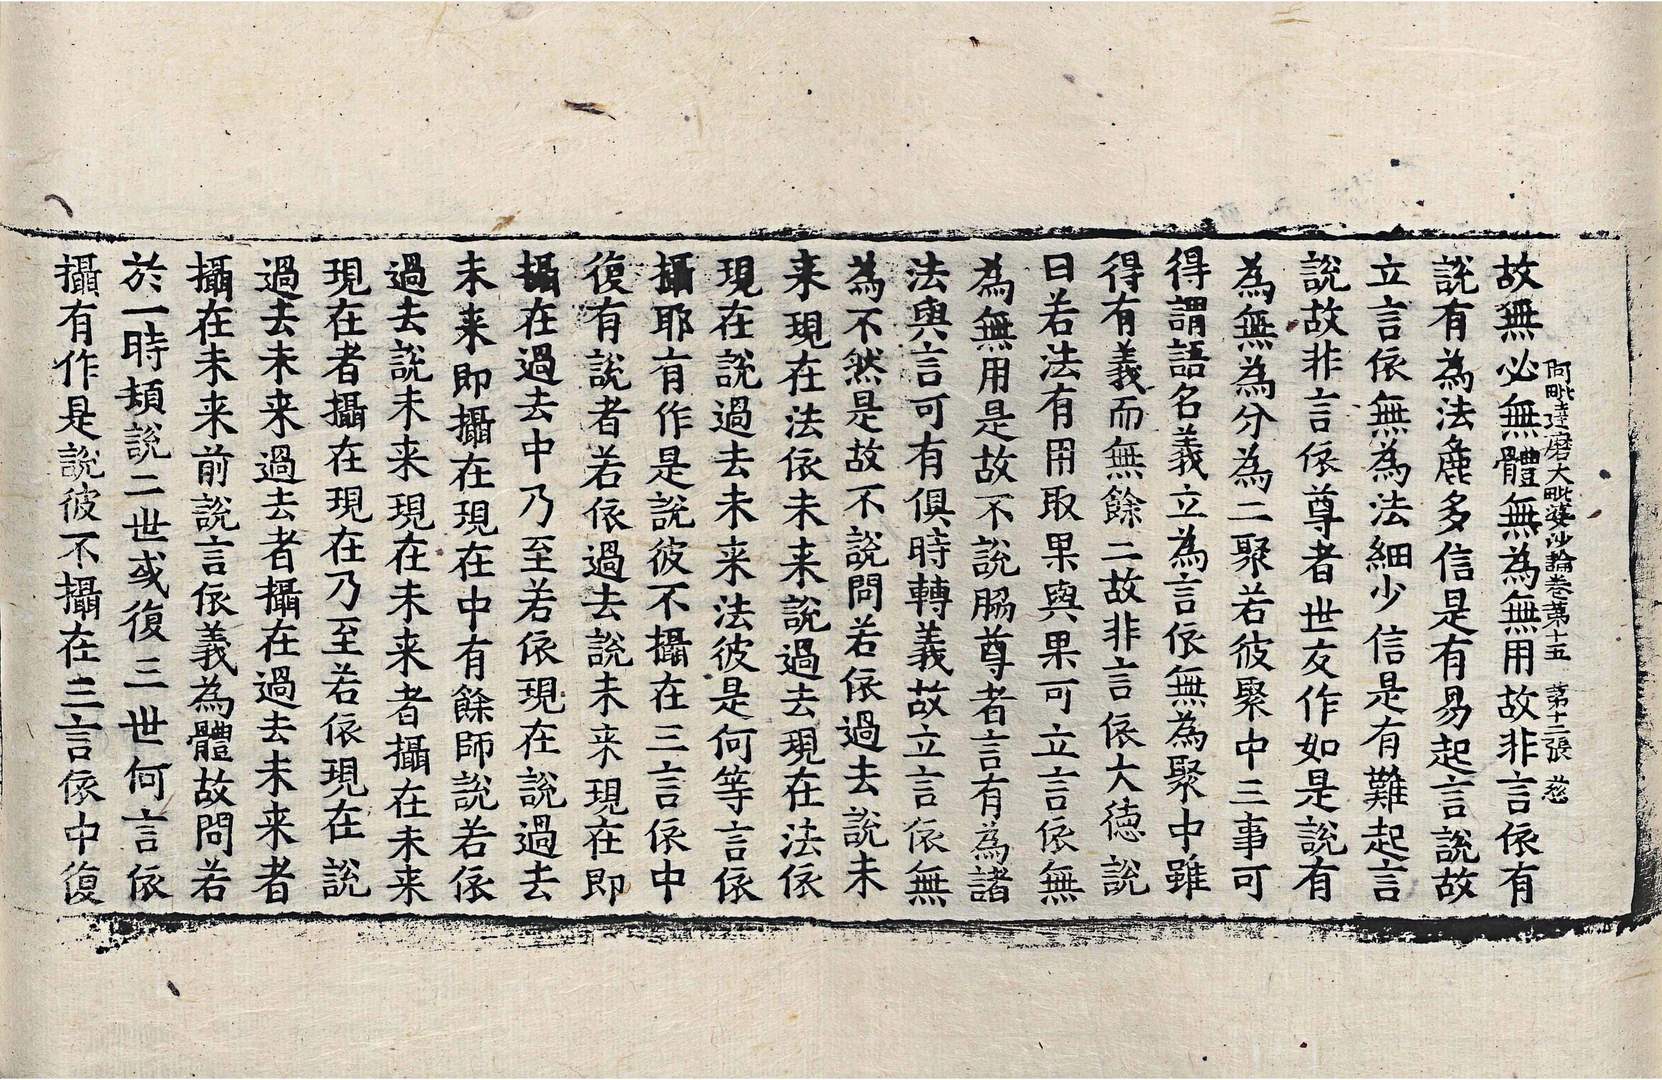 阿毗達磨大毗婆沙論卷第十五　第十二張　慈
故無必無體無為無用故非言依有
說有為法麁多信是有易起言說故
立言依無為法細少信是有難起言
說故非言依尊者世友作如是說有
為無為分為二聚若彼聚中三事可
得謂語名義立為言依無為聚中雖
得有義而無餘二故非言依大德說
曰若法有用取果與果可立言依無
為無用是故不說脇尊者言有為諸
法與言可有俱時轉義故立言依無
為不然是故不說問若依過去說未
来現在法依未来說過去現在法依
現在說過去未来法彼是何等言依
攝耶有作是說彼不攝在三言依中
復有說者若依過去說未来現在即
攝在過去中乃至若依現在說過去
未来即攝在現在中有餘師說若依
過去說未来現在未来者攝在未来
現在者攝在現在乃至若依現在說
過去未来過去者攝在過去未来者
攝在未来前說言依義為體故問若
於一時頓說二世或復三世何言依
攝有作是說彼不攝在三言依中復